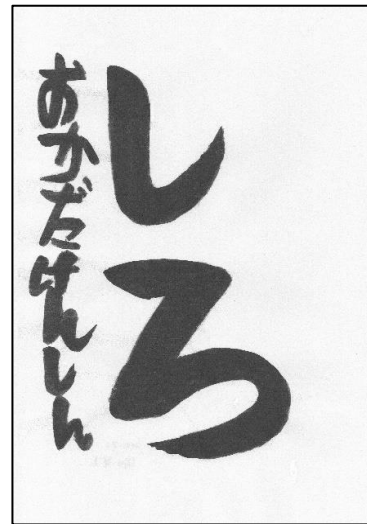 しろ
おかだけんしん